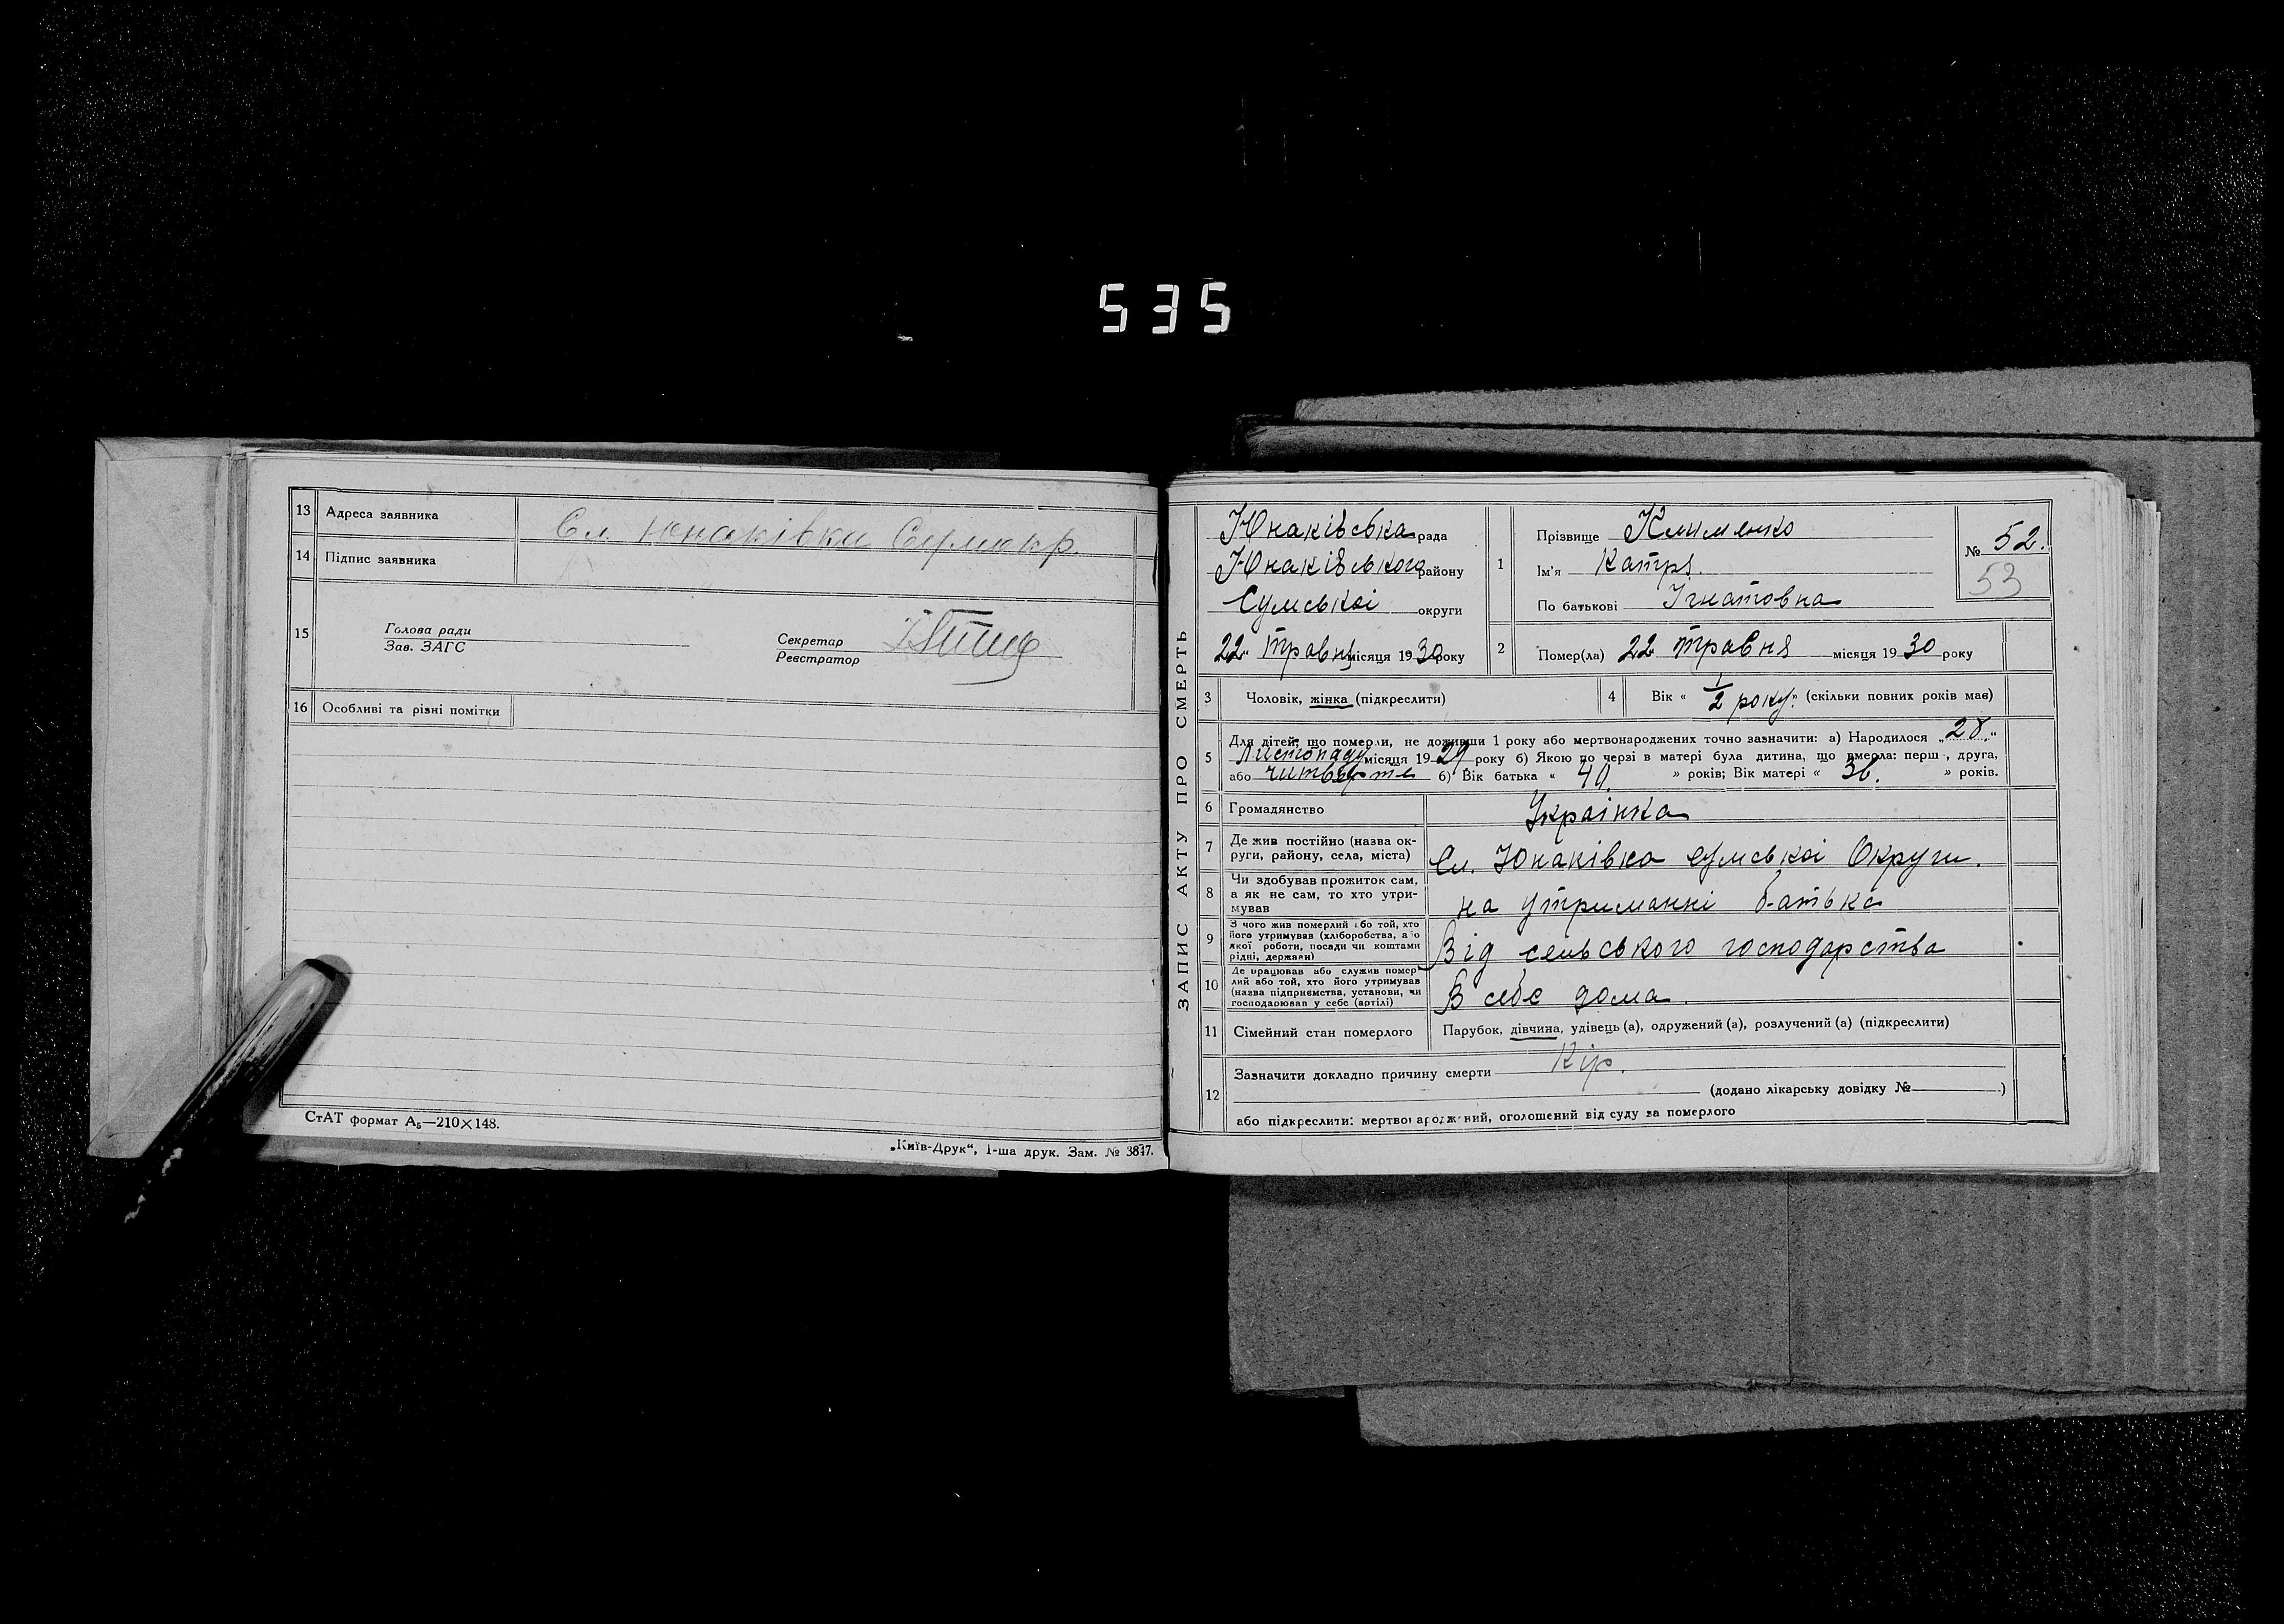 535
13 Адреса заявника Сл. Юнаківки Сум окр.
14 Підпис заявника
15 Голова ради
Зав. ЗАГС
Секретар
Реєстратор
16 Особливі та різні помітки
СтАТ формат А₅—210×148.
„Київ-Друк“, 1-ша друк. Зам. № 3847.
ЗАПИС АКТУ ПРО СМЕРТЬ
Юнаківська рада
Юнаківського району
Сумської округи
22 Травня місяця 1930 року
1 Прізвище Клименко
Ім'я Катря.
По батькові Ігнатовна
№ 52.
53
2 Помер(ла) 22 травня місяця 1930 року
3 Чоловік, жінка (підкреслити)
4 Вік « 1/2 року » (скільки повних років має)
5 Для дітей, що померли, не доживши 1 року або мертвонароджених точно зазначити: а) Народилося „28“
Листопаду місяця 1929 року б) Якою по черзі в матері була дитина, що вмерла: перш , друга,
або читверте б) Вік батька « 40. » років; Вік матері « 36. » років.
6 Громадянство Українка
7 Де жив постійно (назва ок-
руги, району, села, міста) Сл. Юнаківка сумської Округи.
8 Чи здобував прожиток сам,
а як не сам, то хто утри-
мував на утриманні батька
9 З чого жив померлий або той, хто
його утримував (хліборобства, а о
якої роботи, посади чи коштами
рідні, держави) Від сельського господарства
10 Де працював або служив помер
лий або той, хто його утримував
(назва підприємства, установи, чи
господарював у себе (артілі) В себе дома.
11 Сімейний стан померлого Парубок, дівчина, удівець (а), одружений (а), розлучений (а) (підкреслити)
12 Зазначити докладно причину смерти Кір.
(додано лікарську довідку № )
або підкреслити: мертвонароджений, оголошений від суду за померлого